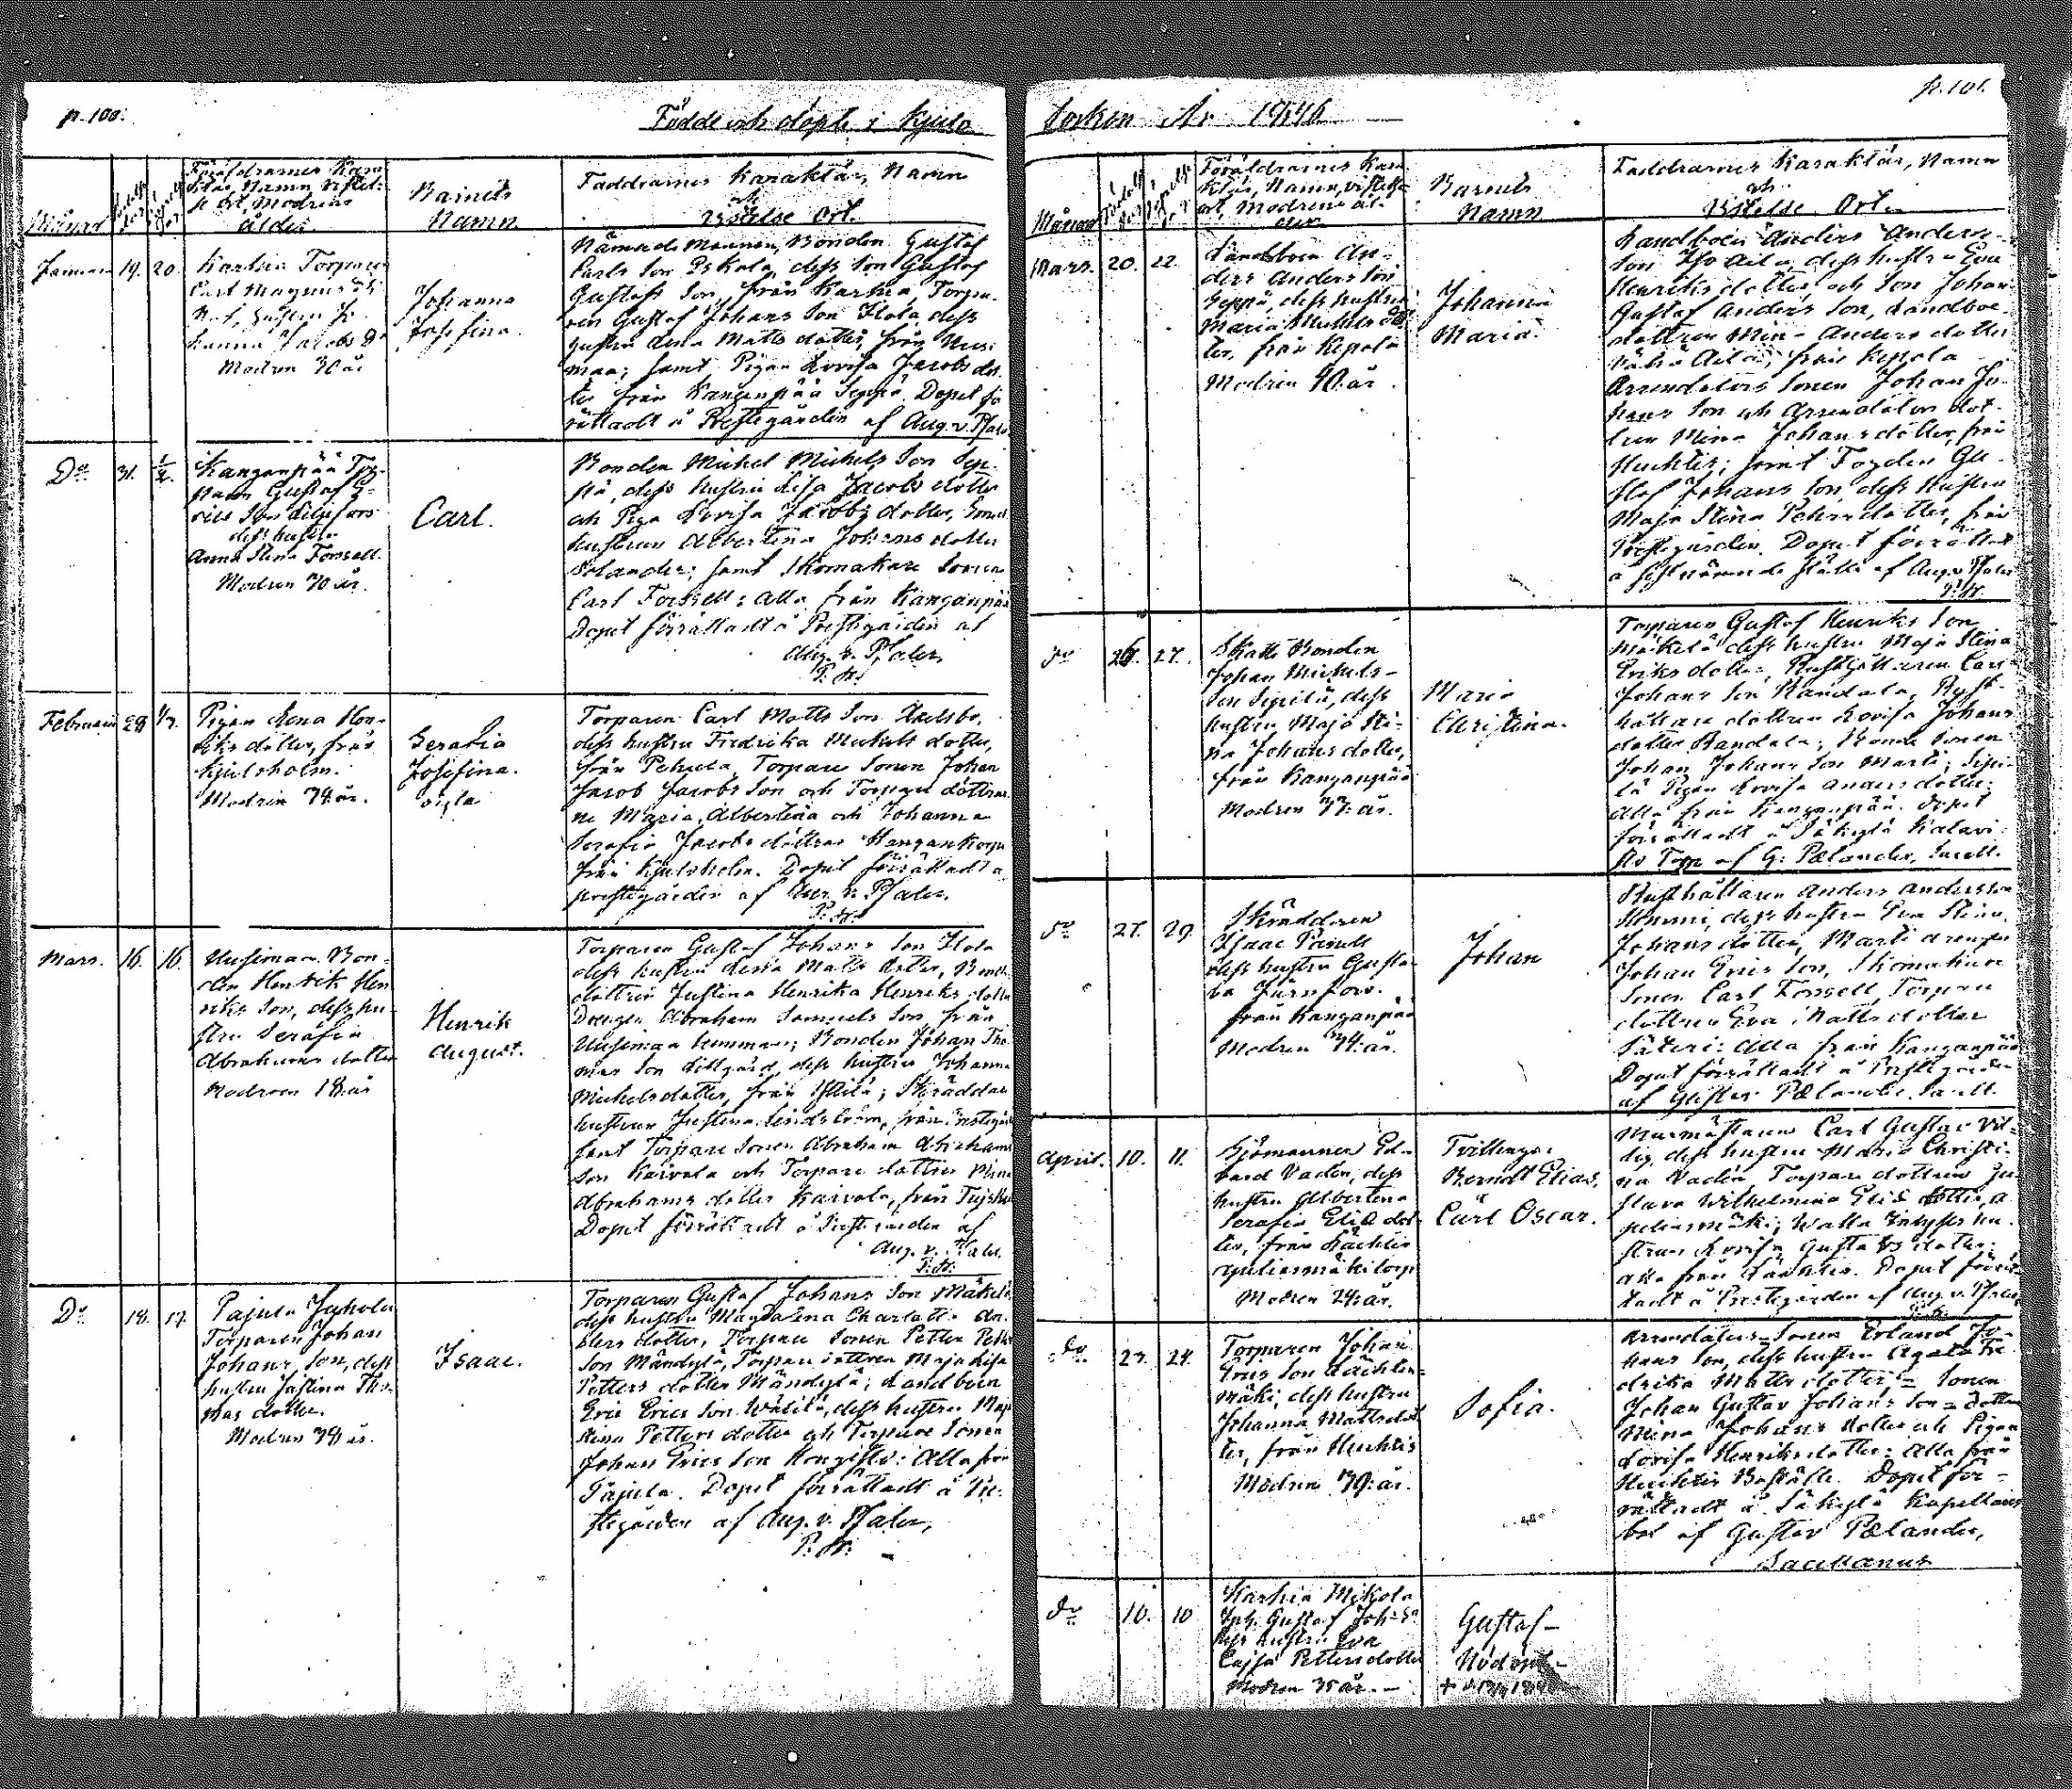 p. 100.
Födde och döpte i Kjulo
Månad
Föräldrarnes Kara
ktär, Namn, vistel-
se ort, Modrens
ålder.
Barnets
Namn
Faddrarnes Karaktär, Namn
och
Vistelse Ort.
Januari 19. 20.
Karhia Torparen
Carl Magnus
hustru Jo-
hanna Jacobs Dr
Modren 30 år
Johanna
Josefina.
Nämndemannen, Bonden Gustaf
Carls Son Eskola, dess Son Gustaf
Gustafs Son, från Karhia, Torpa-
ren Gustaf Johans Son Ilola dess
hustru Lena Matts dotter, från Uusi
maa; samt Pigan Lovisa Jacobs dot-
ter från Kanganpää Seppä. Dopet för
rättadt å Prestegården af Aug. v. Pfaler
Do 31. 1/2.
Kanganpää Tor-
paren Gustaf E-
rics Son Liljefors
dess hustru
Anna Stina Forssell.
Modren 30 år.
Carl.
Bonden Michel Michels Son Sep-
pä, dess hustru Lisa Jacobs dotter
och Piga Lovisa Jacobs dotter,
hustrun Albertina Johans dotter
Solander; samt Skomakare Sonen
Carl Forssell: alla från Kanganpää
Dopet förrättadt å Prestegården af
Aug. v. Pfaler,
P. H.
Februari 29 1/3.
Pigan Lena Hen-
riks dotter, från
Kjuloholm.
Modren 34 år.
Serafia
Josefina.
oägta
Torparen Carl Matts Son Axelsbo,
dess hustru Fredrika Michels dotter,
från Pehula, Torpare Sonen Johan
Jacob Jacobs Son och Torpare döttrar-
ne Maria Albertina och Johanna
Serafia Jacobs döttrar Hangankorpi
från Kjuloholm. Dopet förrättadt å
prestegården af Aug. v. Pfaler,
P. H.
Mars. 16. 16.
Uusimaa Bon-
den Henrik Hen
riks Son, dess hu-
stru Serafia
Abrahams dotter
Modren 18 år
Henrik
August.
Torparen Gustaf Johans Son Ilola
dess hustru Lena Matts dotter, Bonde
dottren Justina Henrika Henriks dotter
Drengen Abraham Samuels Son, från
Uusimaa; Bonden Johan Tho
mas Son Lillgård, dess hustru Johanna
Michelsdotter, från; Skräddar
hustrun Justina Lindström, från Prestegård
samt Torpare Sonen Abraham Abrahams
Son Kaivola och Torpare dottren Mina
Abrahams dotter Kaivola, från
Dopet förrättadt å Prestegården af
Aug. v. Pfaler
P. H.
Do 18. 19.
Pajula Jyrhola
Torparen Johan
Johans Son, dess
hustru Justina Tho-
mas dotter.
Modren 39 år.
Isaac.
Torparen Gustaf Johans Son Mäkelä,
dess hustru Magdalena Charlotta An-
ders dotter, Torpare Sonen Petter Petter
Son Mändylä, Torpare dottren Maja Lisa
Petters dotter Mändylä; Landboen
Eric Erics Son, dess hustru Maja
Stina Petters dotter och Torpare Sonen
Johan Erics Son Hongisto: Alla från
Pajula. Dopet förrättadt å Pre-
stegården af Aug. v. Pfaler,
P. H.
p. 101.
Socken År 1846
Månad
Föräldrarnes Kara
ktär, Namn, vistelse
ort, Modrens ål-
der.
Barnets
Namn
Faddrarnes Karaktär, Namn
och
Vistelse Ort.
Mars. 20. 22.
Landboen An-
ders Anders Son
Seppä, dess hustru
Maria Michels dot
ter, från Kepola
Modren 40 år.
Johanna
Maria.
Landboen Anders Anders
Son Iso Aila, dess hustru Eva
Henriks dotter och Son Johan
Gustaf Anders Son, Landboe
dottren Mina Anders dotter
Vähä Aila, från Kepola
Arrendators Sonen Johan Jo-
hans Son och Arrendators dot-
tren Mina Johans dotter, från
Huchtis; samt Fogden Gu-
staf Johans Son, dess hustru
Maja Stina Pehrs dotter, från
Prestegården. Dopet förrättadt
å sistnämnde ställe af Aug. v. Pfaler
P. H.
do 26. 27.
Skatte Bonden
Johan Michels
Son Sipilä, dess
hustru Maja Sti-
na Johans dotter,
från Kanganpää
Modren 37 år.
Maria
Christina.
Torparen Gustaf Henriks Son
Mäkelä dess hustru Maja Stina
Eriks dotter, Rusthållaren Carl
Johans Son Randala, Rust-
hållare dottren Lovisa Johans
dotter Randala; Bonde Sonen
Johan Johans Son Marti; Sipi-
lä Pigan Lovisa Anders dotter:
Alla från Kanganpää. Dopet
förrättadt å Säkylä Katavi-
sto Torp af G: Pælander, Sacell.
do 27. 29.
Skräddaren
Isaac
dess hustru Gusta-
va Järnfors.
från Kanganpää
Modren 34 år.
Johan
Rusthållaren Anders Andersson
dess hustru Eva Stina
Johans dotter, Marti drengen
Johan Erics Son, Skomakare
Sonen Carl Forssell Torpare
dottren Eva Matts dotter
Säteri: Alla från Kanganpää
Dopet förrättadt å Prestegården
af Gustav Pælander Sacell.
April. 10. 11.
Sjömannen Ed-
vard Vadén, dess
hustru Albertina
Serafia Eliæ dot-
ter, från Lächtis
torp
Modren 24 år.
Tvillingar
Berndt Elias,
Carl Oscar.
Murmästaren Carl Gustav Vil-
dig, dess hustru Maria Christi-
na Vadén Torpare dottren Gu-
stava Wilhelmina Eliæ dotter,
hu-
strun Lovisa Gustafs dotter:
alla från Lächtis. Dopet förrät-
tadt å Prestegården af Aug. v. Pfaler
do 23. 24.
Torparen Johan
Erics Son Lächten-
mäki, dess hustru
Johanna Matts dot
ter, från Huchtis
Modren 39 år.
Sofia.
Arrendators Sonen Erland Jo-
hans Son, dess hustru Agata Fre
drika Matts dotter = Sonen
Johan Gustav Johans Son = dottren
Mina Johans dotter och Pigan
Lovisa Henriks dotter: alla från
Huchtis Boställe. Dopet för-
rättadt å Säkylä Kapellans
bol af Gustav Pælander,
Sacellanus
do 10. 10
Karhia Mikola
Gustaf Johs Sn
dess hustru Eva
Cajsa Petters dotter
Modren 35 år.
Gustaf
Nöddöpt